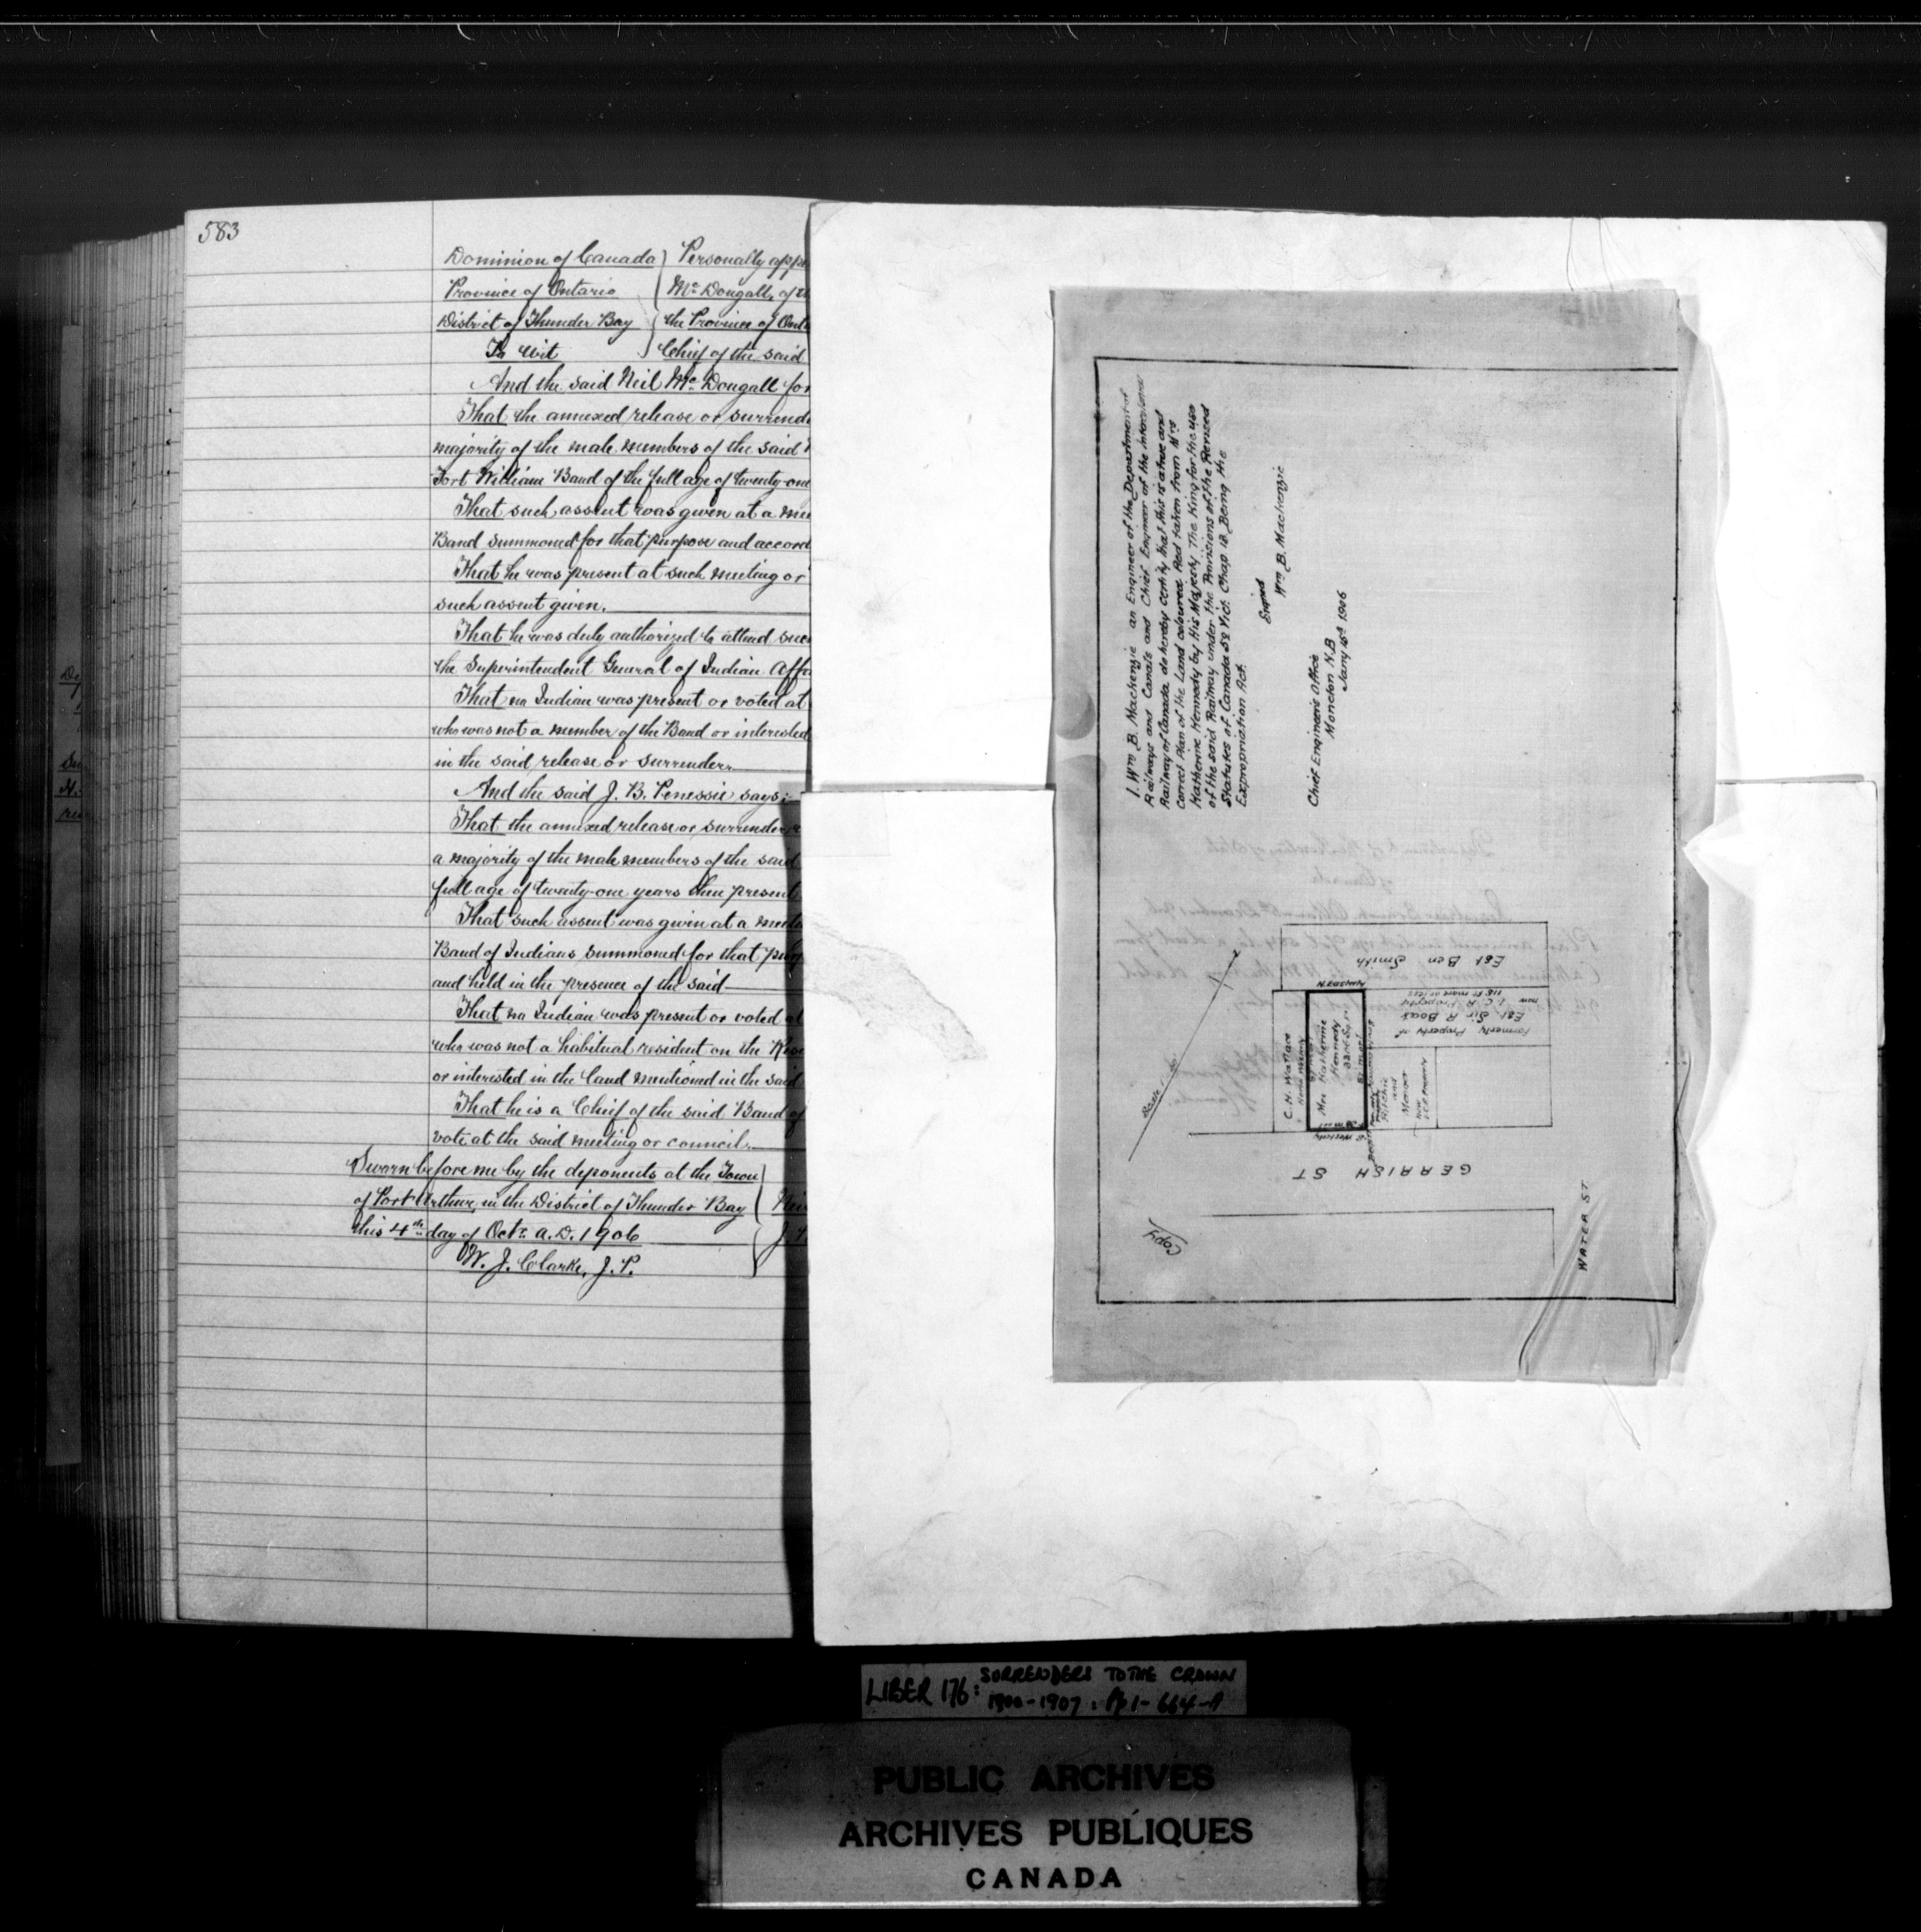 583
Dominion of Canada
Province of Ontario
District of Thunder Bay
To wit
Personally
Mc Dougall, of
the Province of
Chief of the said
And the said Neil Mc Dougall
That the annexed release or
majority of the male members of the said
Fort William Band of the full age of twenty-one
That such assent was given at a
Band summoned for that purpose and
That he was present at such meeting or
such assent given.
That he was duly authorized to attend
the Superintendent General of Indian
That no Indian was present or voted at
who was not a member of the Band or interested
in the said release or surrender.
And the said J. B. Penessie says:
That the annexed release or surrender
a majority of the male members of the said
full age of twenty-one years then present
That such assent was given at a
Band of Indians summoned for that
and held in the presence of the said
That no Indian was present or voted
who was not a habitual resident on the
or interested in the land mentioned in the said
That he is a Chief of the said Band
vote at the said meeting or council.
Sworn before me by the deponents at the Town
of Port Arthur, in the District of Thunder Bay
this 4th day of Octr. A.D. 1906
W. J. Clarke, J. P.
I, Wm B. Mackenzie an Engineer of the Department of
Railways and Canals and Chief Engineer of the Intercolonial
Railway of Canada do hereby certify that this is a true and
correct Plan of the Land coloured Red taken from Mrs
Katherine Kennedy by His Majesty The King for the use
of the said Railway under the Provisions of the Revised
Statutes of Canada 52 Vict. Chap 13 Being the
Expropriation Act.
Signed
Wm B. Mackenzie
Chief Engineer's Office
Moncton N.B
Jany 15th 1906
Est Ben Smith
N. Easterly
Formerly Property of
Est Sir R Boak
now I.C.R Property
118 ft more or less
C. H. Wallace
Mrs Katherine
Kennedy
Ritchie
and
Mercer
now
I.C.R Property
S. Westerly
GERRISH ST
WATER ST
Copy
LIBER 176: SURRENDERS TO THE CROWN
1900-1907: Pp 1-664-A
PUBLIC ARCHIVES
ARCHIVES PUBLIQUES
CANADA